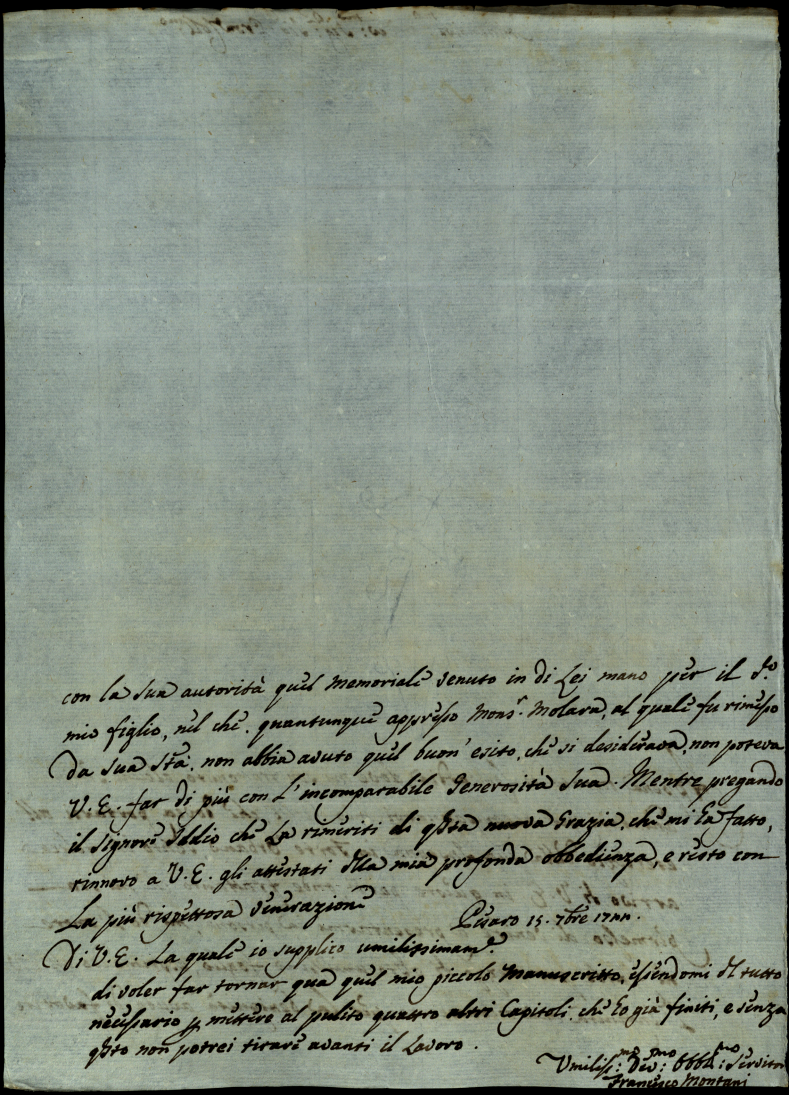 con la sua autorità quel Memoriale venuto in di Lei mano per il Sd.º
mio figlio, nel che, quantunque appresso Mons.r Molara, al quale fu rimesso
da Sua Stà. non abbia avuto quel buon' esito, che si desiderava, non poteva
V. E. far di più con l'incomparabile Generosità Sua. Mentre pregando
il Signore Iddio che La rimeriti di qsta nuova Grazia, che mi hà fatto,
rinnovo a V. E. gli attestati dlla mia profonda obbedienza, e resto con
La più rispettosa venerazione
Pesaro 15. 7bre 1744.
Di V. E. La quale io supplico umilissimam.e
di voler far tornar qua quel mio piccolo Manuscritto, essendomi dl tutto
necessario p mettere al pulito quattro altri Capitoli, che ho già finiti, e senza
qsto non potrei tirare avanti il Lavoro.
Umiliss:mo Dev:mo Obbl:mo Servitor
Francesco Montani